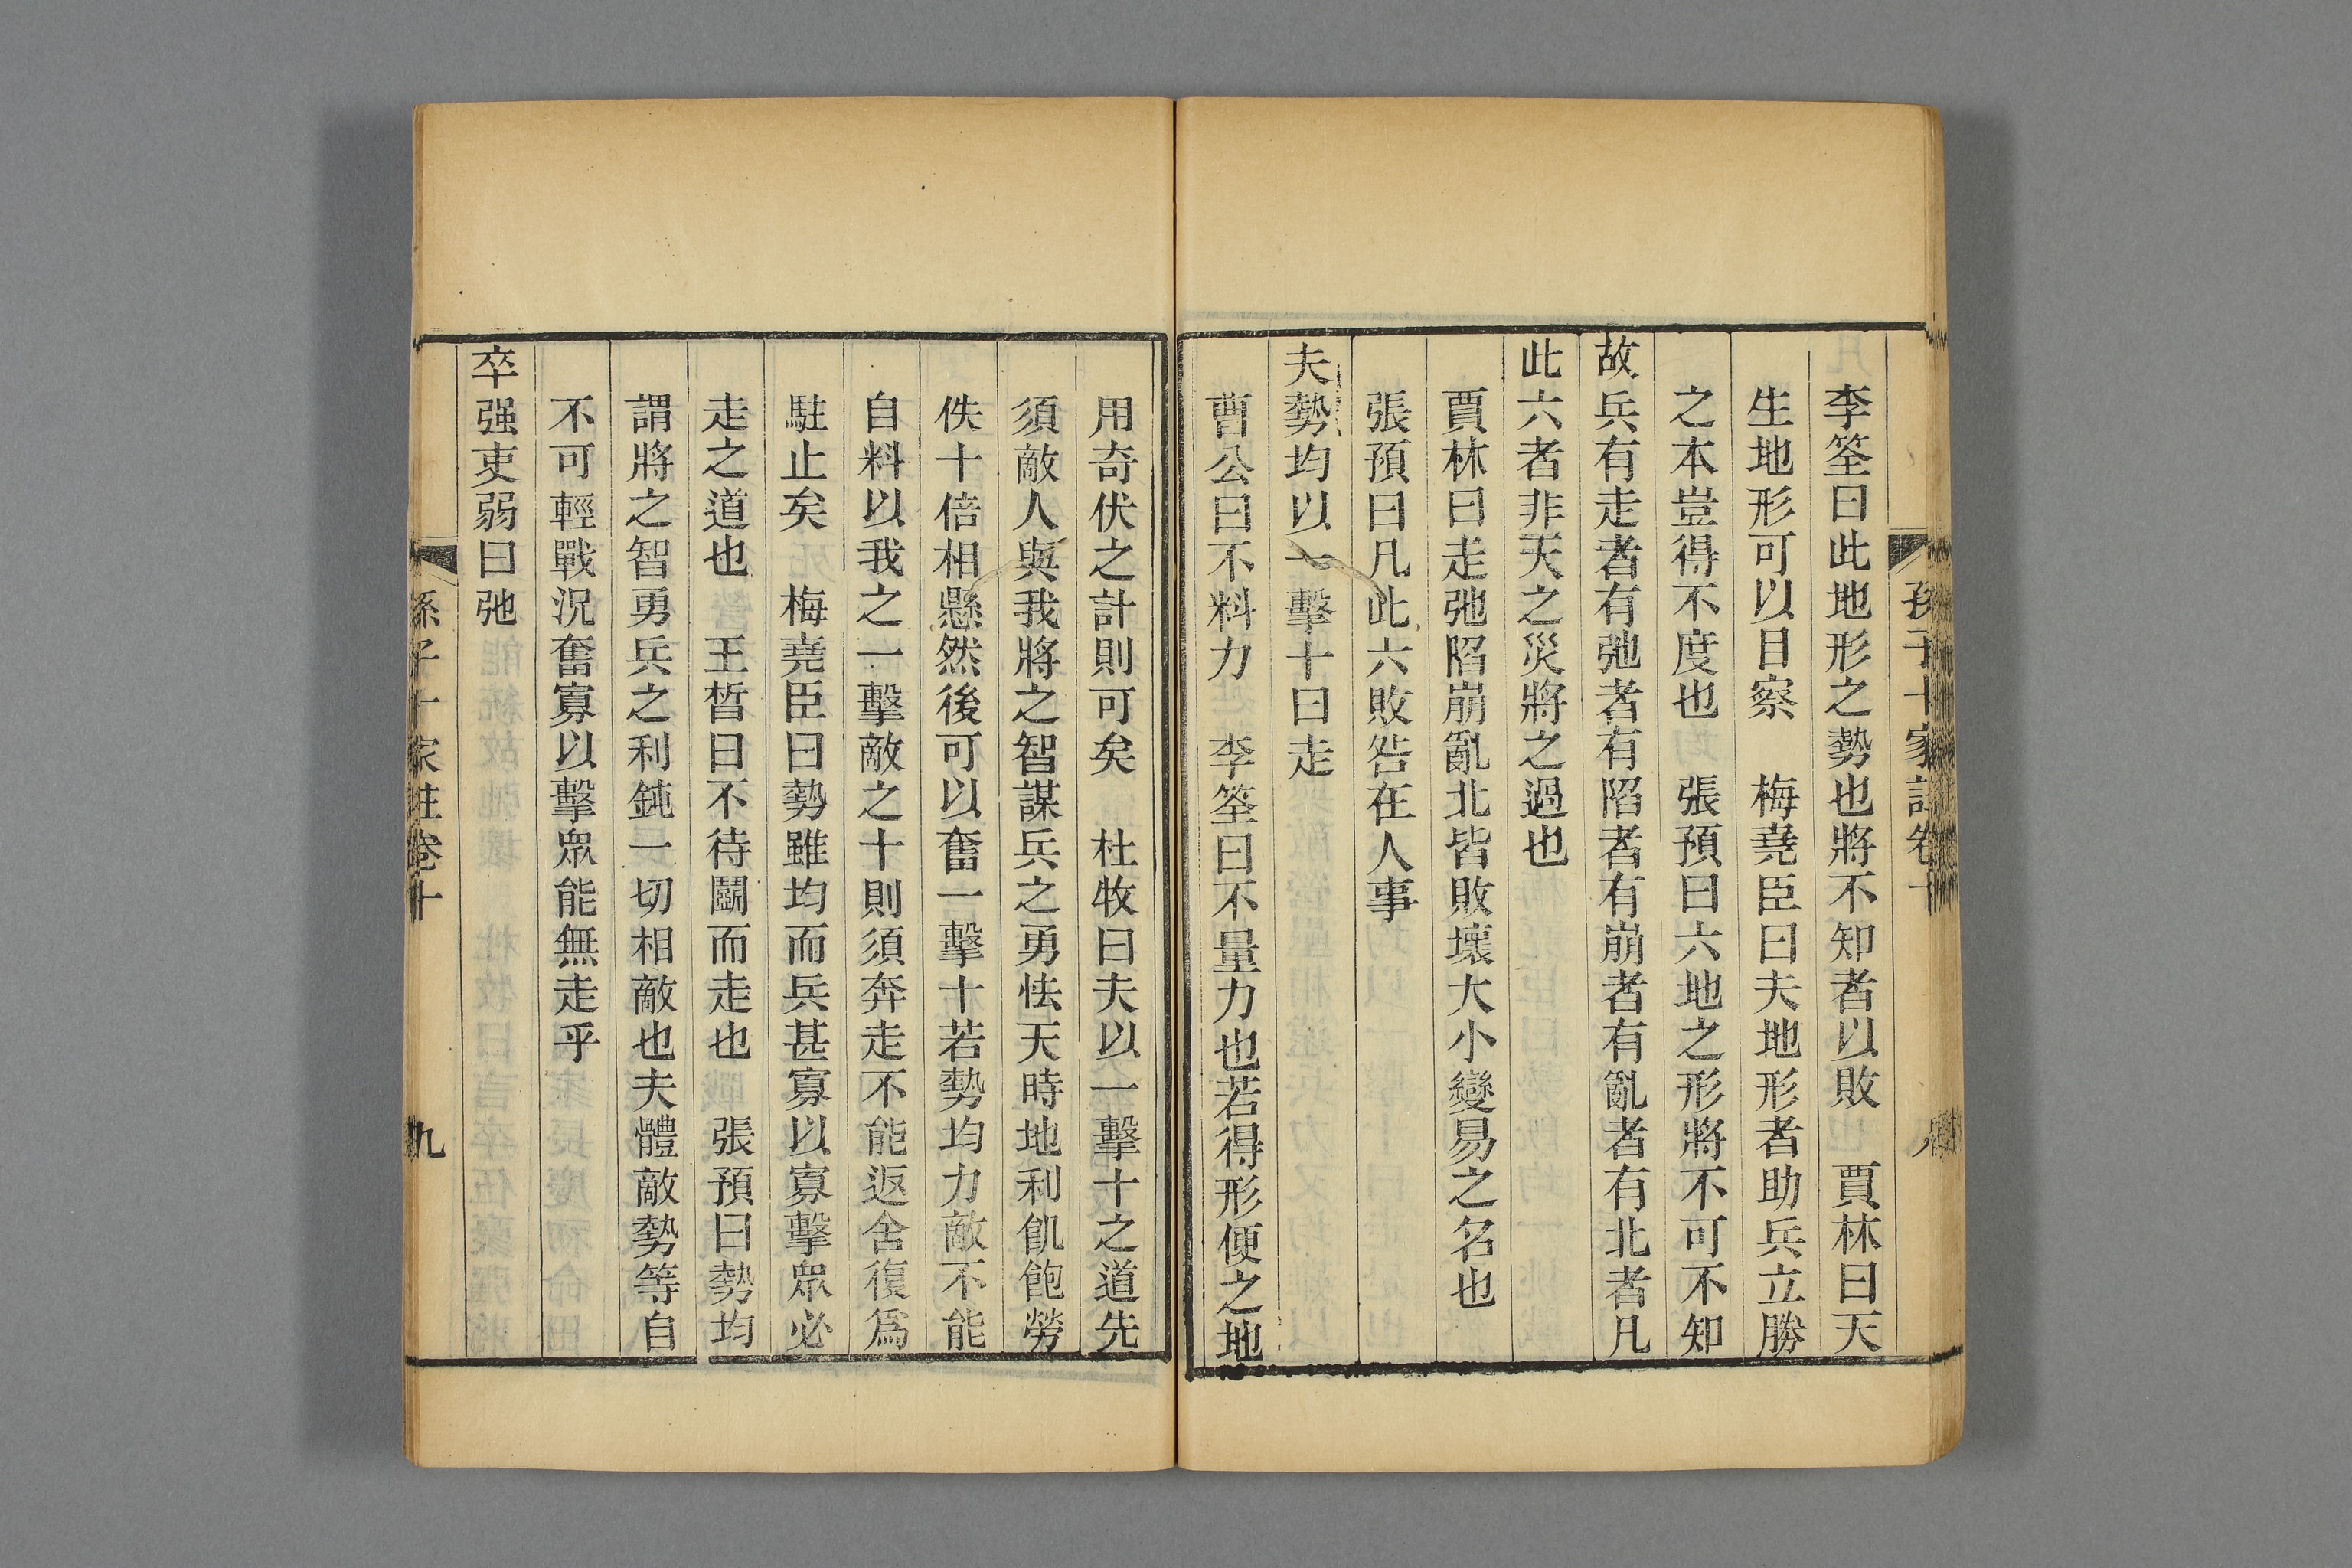 孫子十家註卷十
李筌曰此地形之勢也將不知者以敗　賈林曰天
生地形可以目察　梅堯臣曰夫地形者助兵立勝
之本豈得不度也　張預曰六地之形將不可不知
故兵有走者有弛者有陷者有崩者有亂者有北者凡
此六者非天之災將之過也
賈林曰走弛陷崩亂北皆敗壞大小變易之名也
張預曰凡此六敗咎在人事
夫勢均以一擊十曰走
曹公曰不料力　李筌曰不量力也若得形便之地
用奇伏之計則可矣　杜牧曰夫以一擊十之道先
須敵人與我將之智謀兵之勇怯天時地利飢飽勞
佚十倍相懸然後可以奮一擊十若勢均力敵不能
自料以我之一擊敵之十則須奔走不能返舍復爲
駐止矣　梅堯臣曰勢雖均而兵甚寡以寡擊眾必
走之道也　王晳曰不待鬬而走也　張預曰勢均
謂將之智勇兵之利鈍一切相敵也夫體敵勢等自
不可輕戰況奮寡以擊眾能無走乎
卒强吏弱曰弛
孫子十家註卷十　九